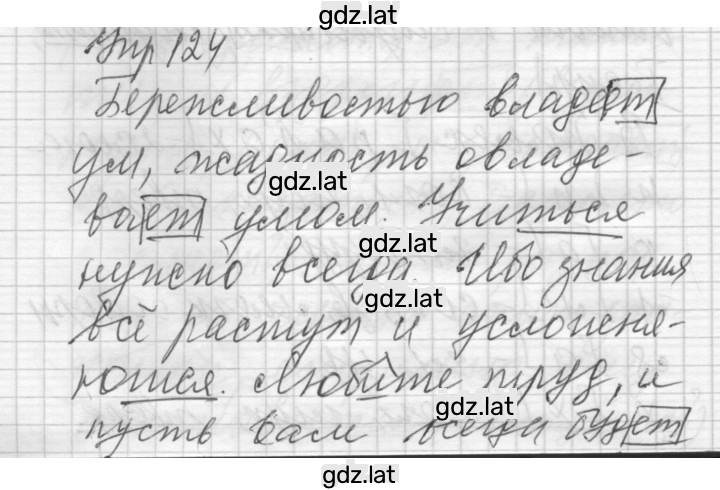 gdz.lat
Упр 124
Бережливостью владеет
ум, жадность овладе-
gdz.lat
вает умом. Учиться
gdz.lat
нужно всегда. Ибо знания
gdz.lat
всё растут и усложня-
ются. Любите труд, и
gdz.lat
пусть вам всегда будет
gdz.lat